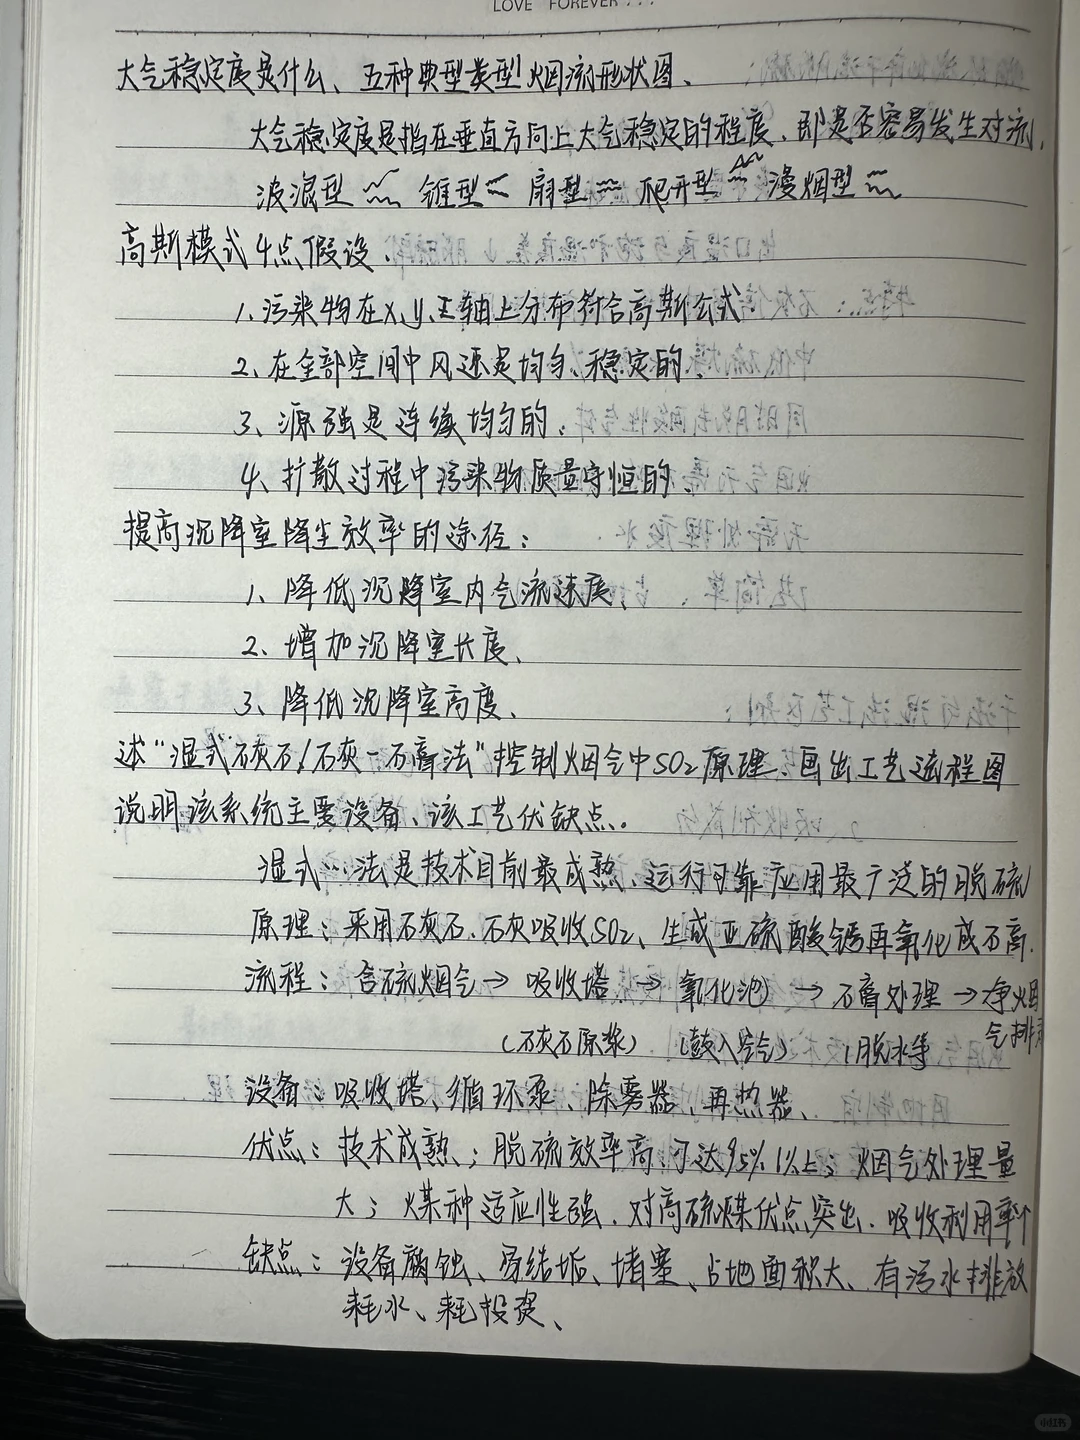 LOVE FOREVER...
大气稳定度是什么、五种典型类型烟流形状图、
大气稳定度是指在垂直方向上大气稳定的程度、即是否容易发生对流、
波浪型 锥型 扇型 爬升型 漫烟型
高斯模式4点假设、
1、污染物在x,y,z轴上分布符合高斯公式
2、在全部空间中风速是均匀、稳定的、
3、源强是连续均匀的、
4、扩散过程中污染物质量守恒的、
提高沉降室降尘效率的途径：
1、降低沉降室内气流速度、
2、增加沉降室长度、
3、降低沉降室高度、
述“湿式石灰石/石灰-石膏法”控制烟气中SO2原理、画出工艺流程图
说明该系统主要设备、该工艺优缺点。
湿式…法是技术目前最成熟、运行可靠应用最广泛的脱硫
原理：采用石灰石、石灰吸收SO2、生成亚硫酸钙再氧化成石膏.
流程：含硫烟气→ 吸收塔 → 氧化池 → 石膏处理 → 净烟
（石灰石原浆） （鼓入空气） （脱水等 气排
设备：吸收塔、循环泵、除雾器、再热器、
优点：技术成熟；脱硫效率高、可达95%以上；烟气处理量
大；煤种适应性强、对高硫煤优点突出、吸收利用率个
缺点：设备腐蚀、易结垢、堵塞、占地面积大、有污水排放
耗水、耗投资、
小红书